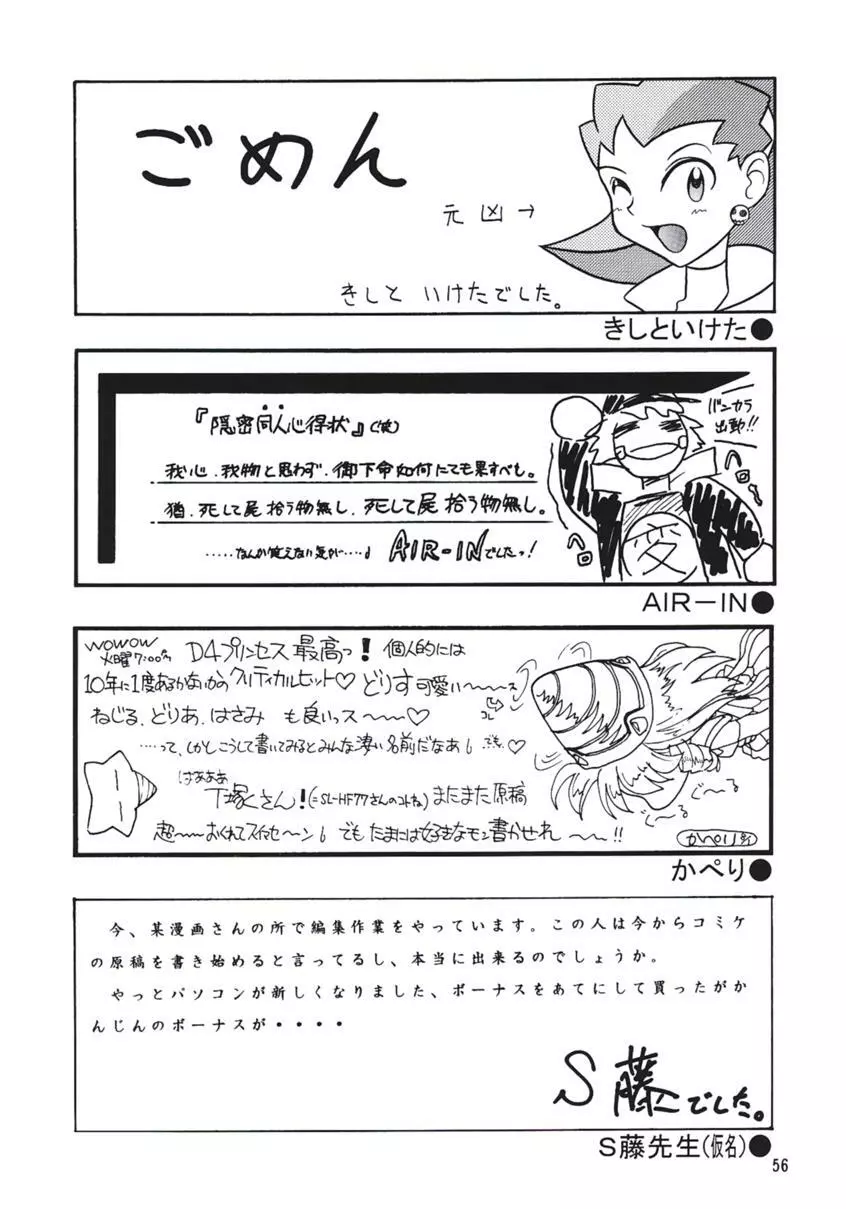 ごめん
元凶→
きしと いけたでした。
きしといけた●
『隠密同人心得状』(仮)
バンカラ
出動!!
我心、我物と思わず、御下命如何にても果すべし。
猶、死して屍拾う物無し、死して屍拾う物無し。
‥‥なんか覚えない気が‥‥♪ AIR-INでしたっ!
ヘロ
ヘロ
変
AIR-IN●
WOWOW
火曜7:00から
D4プリンセス最高っ! 個人的には
10年に1度あるかないかのクリティカルヒット♡ どりす可愛い〜〜〜ス
コレ
ねじる、どりあ、はさみ も良いっス〜〜♡
‥‥って、しかしこうして書いてみるとみんな凄い名前だなあ でも♡
はぁぁぁ
T塚くさん!(=SL-HF77さんのコトね)またまた原稿
超〜〜おくれてスイマセ〜ン でもたまには好きなモン書かせれ〜〜!!
ぐ〜る
ぐ〜る
かぺり●
今、某漫画さんの所で編集作業をやっています。この人は今からコミケ
の原稿を書き始めると言ってるし、本当に出来るのでしょうか。
やっとパソコンが新しくなりました、ボーナスをあてにして買ったがか
んじんのボーナスが・・・・
S藤でした。
S藤先生(仮名)●
56